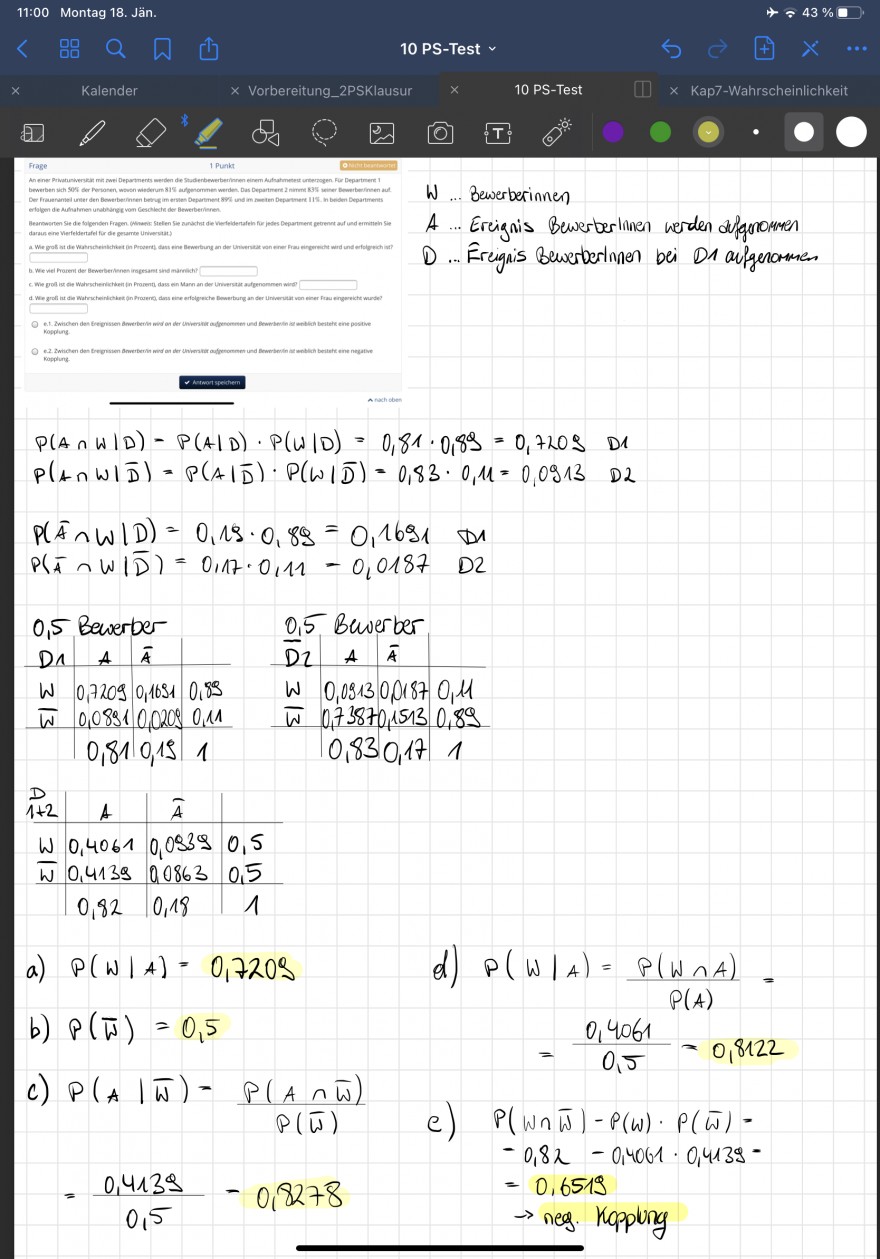 11:00 Montag 18. Jän.
43 %
10 PS-Test
Kalender
Vorbereitung_2PSKlausur
10 PS-Test
Kap7-Wahrscheinlichkeit
Frage
1 Punkt
Nicht beantwortet
An einer Privatuniversität mit zwei Departments werden die Studienbewerber/innen einem Aufnahmetest unterzogen. Für Department 1
bewerben sich 50% der Personen, wovon wiederum 81% aufgenommen werden. Das Department 2 nimmt 83% seiner Bewerber/innen auf.
Der Frauenanteil unter den Bewerber/innen betrug im ersten Department 89% und im zweiten Department 11%. In beiden Departments
erfolgen die Aufnahmen unabhängig vom Geschlecht der Bewerber/innen.
Beantworten Sie die folgenden Fragen. (Hinweis: Stellen Sie zunächst die Vierfeldertafeln für jedes Department getrennt auf und ermitteln Sie
daraus eine Vierfeldertafel für die gesamte Universität.)
a. Wie groß ist die Wahrscheinlichkeit (in Prozent), dass eine Bewerbung an der Universität von einer Frau eingereicht wird und erfolgreich ist?
b. Wie viel Prozent der Bewerber/innen insgesamt sind männlich?
c. Wie groß ist die Wahrscheinlichkeit (in Prozent), dass ein Mann an der Universität aufgenommen wird?
d. Wie groß ist die Wahrscheinlichkeit (in Prozent), dass eine erfolgreiche Bewerbung an der Universität von einer Frau eingereicht wurde?
e.1. Zwischen den Ereignissen Bewerber/in wird an der Universität aufgenommen und Bewerber/in ist weiblich besteht eine positive
Kopplung.
e.2. Zwischen den Ereignissen Bewerber/in wird an der Universität aufgenommen und Bewerber/in ist weiblich besteht eine negative
Kopplung.
Antwort speichern
nach oben
W ... Bewerberinnen
A ... Ereignis BewerberInnen werden aufgenommen
D ... Ereignis BewerberInnen bei D1 aufgenommen
P(A ∩ W | D) = P(A | D) · P(W | D) = 0,81 · 0,89 = 0,7209 D1
P(A ∩ W | D̅) = P(A | D̅) · P(W | D̅) = 0,83 · 0,11 = 0,0913 D2
P(A̅ ∩ W | D) = 0,19 · 0,89 = 0,1691 D1
P(A̅ ∩ W | D̅) = 0,17 · 0,11 = 0,0187 D2
0,5 Bewerber
D1 A A̅
W 0,7209 0,1691 0,89
W̅ 0,0891 0,0209 0,11
0,81 0,19 1
0,5 Bewerber
D̅2 A A̅
W 0,0913 0,0187 0,11
W̅ 0,7387 0,1513 0,89
0,83 0,17 1
D
1+2 A A̅
W 0,4061 0,0939 0,5
W̅ 0,4139 0,0863 0,5
0,82 0,18 1
a) P(W | A) = 0,7209
b) P(W̅) = 0,5
c) P(A | W̅) = P(A ∩ W̅)
P(W̅)
= 0,4139
0,5
= 0,8278
d) P(W | A) = P(W ∩ A) =
P(A)
= 0,4061
0,5
= 0,8122
e) P(W ∩ W̅) - P(W) · P(W̅) =
= 0,82 - 0,4061 · 0,4139 =
= 0,6519
→ neg. Kopplung